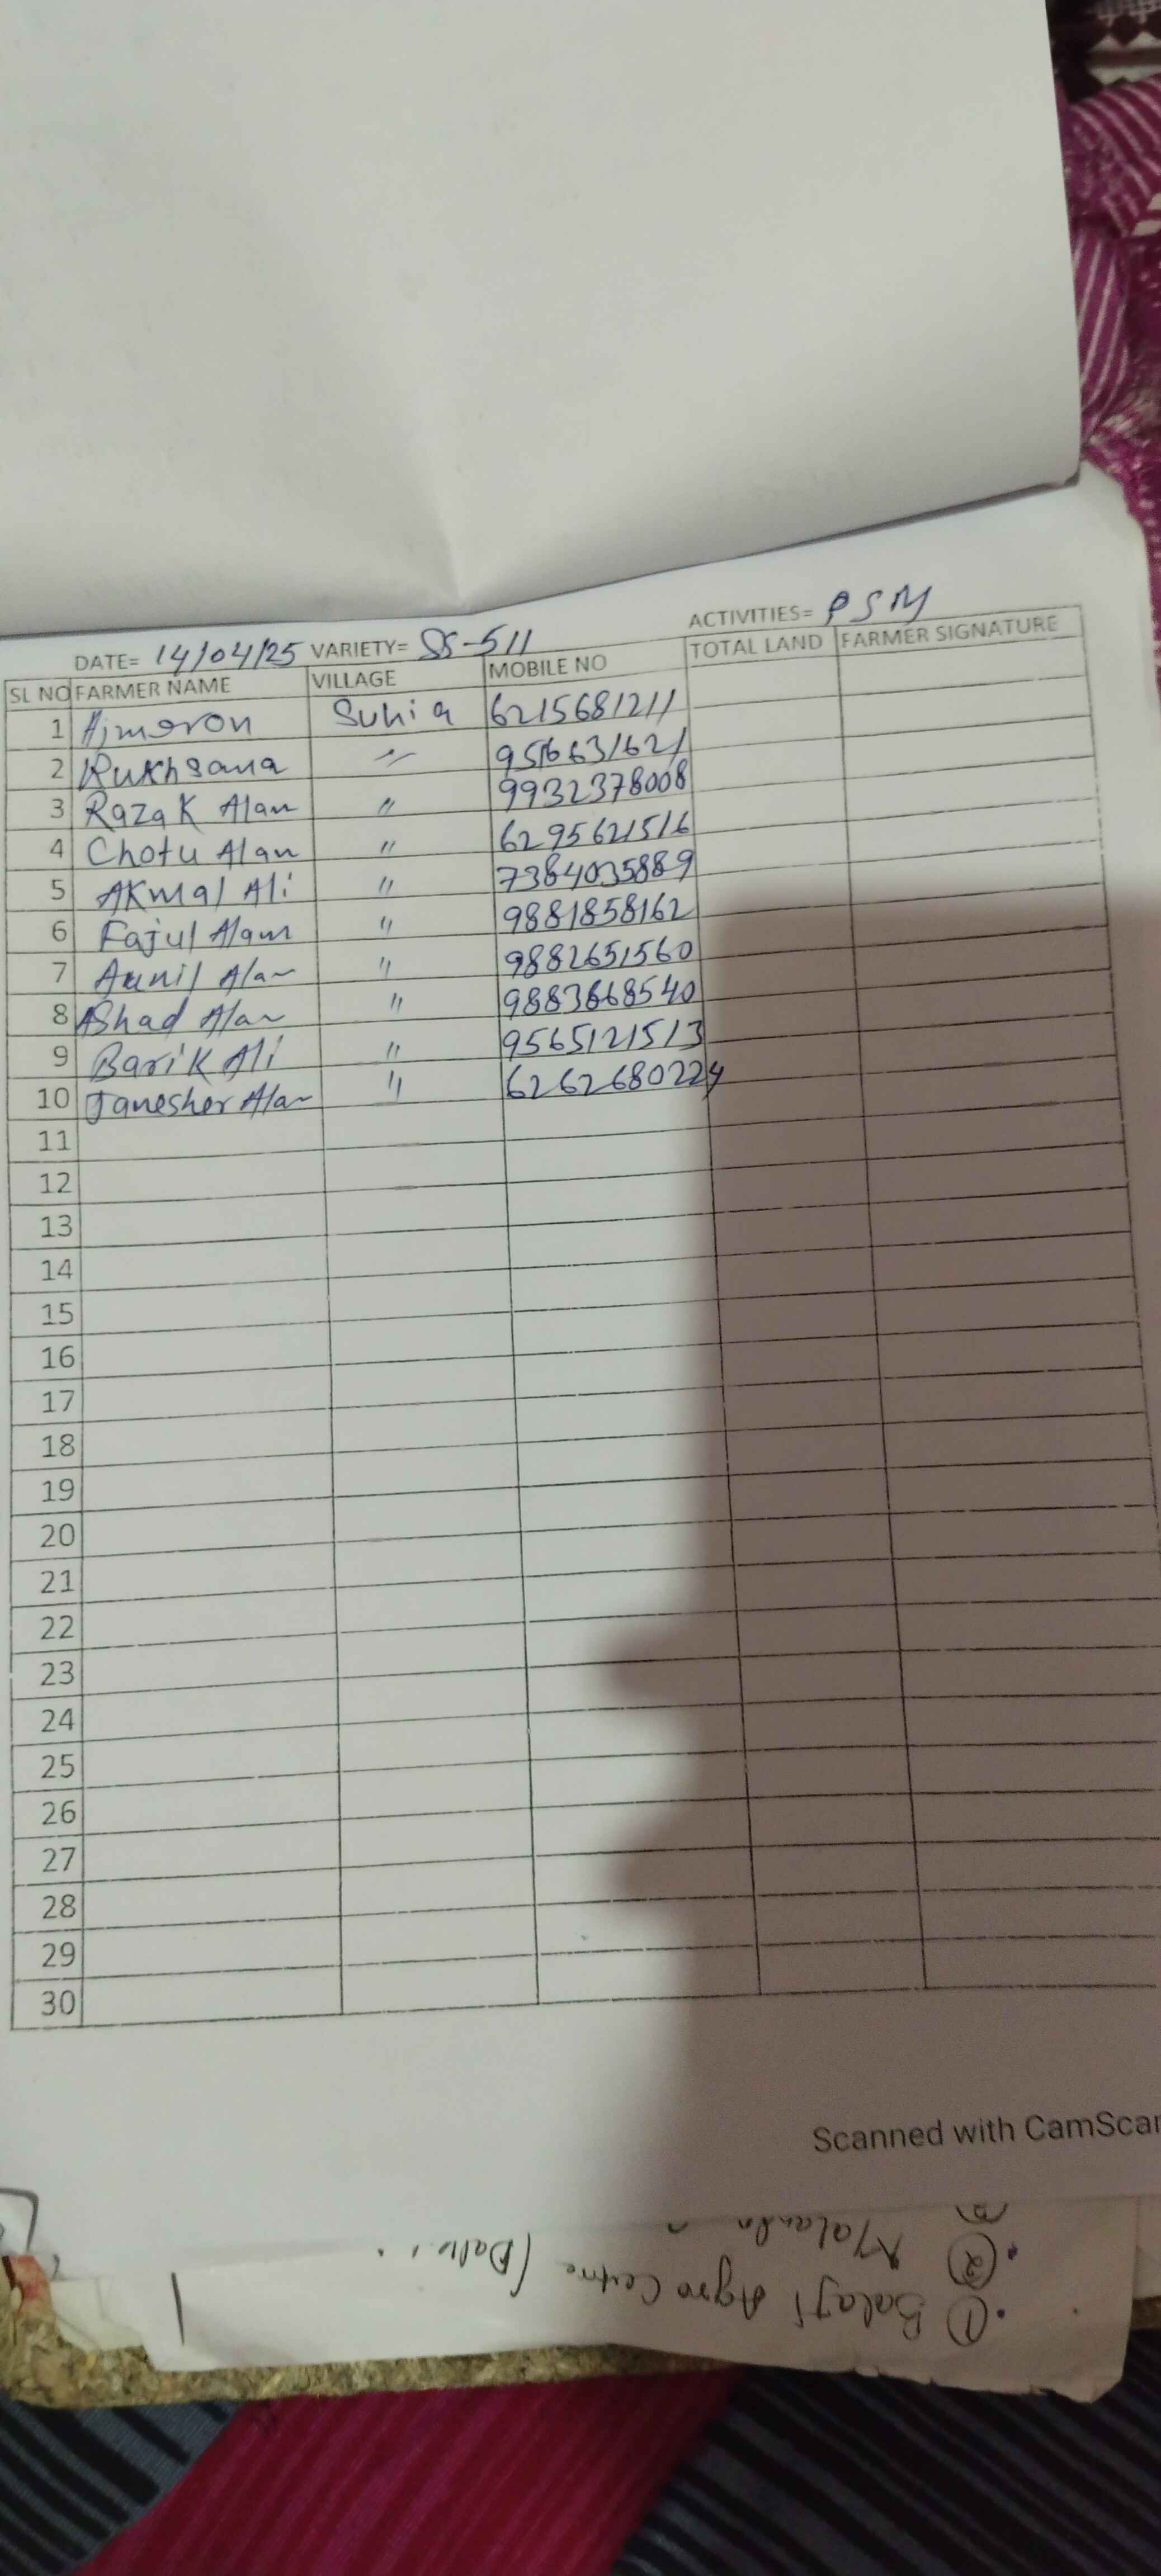 DATE= 14/04/25 VARIETY= SS-511 ACTIVITIES= PSM
SL NO FARMER NAME VILLAGE MOBILE NO TOTAL LAND FARMER SIGNATURE
1 Ajmeron Suhia 6215681211
2 Rukhsana " 9516631621
3 Razak Alam " 9932378008
4 Chotu Alam " 6295621516
5 Akmal Ali " 7384035889
6 Fajul Alam " 9881858162
7 Alam " 9882651560
8 Ashad Alam " 9883668540
9 Barik Ali " 9565121513
10 Janesher Alam " 6262680224
11
12
13
14
15
16
17
18
19
20
21
22
23
24
25
26
27
28
29
30
Scanned with CamScan
① Balaji Agro Centre
②